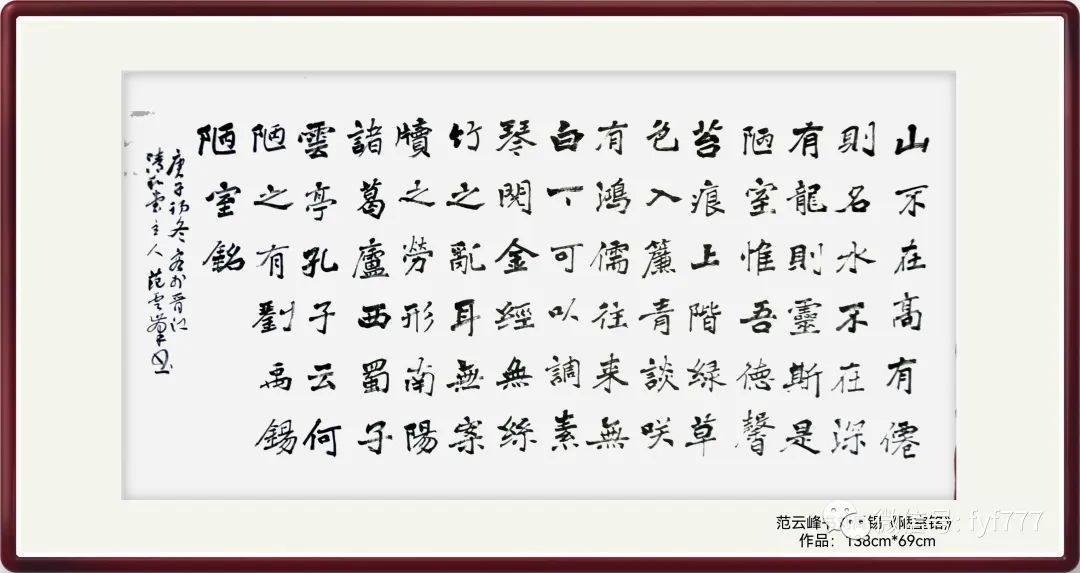 山不在高有僊
則名水不在深
有龍則靈斯是
陋室惟吾德馨
苔痕上階緑草
色入簾青談咲
有鴻儒往来無
白丁可以調素
琴閲金經無絲
竹之亂耳無案
牘之勞形南陽
諸葛廬西蜀子
雲亭孔子云何
陋之有劉禹錫
陋室銘
庚子初冬客於晉江
主人范雲峯書
范云峰 锡《陋室铭》
作品：138cm*69cm
微信号: fyf777